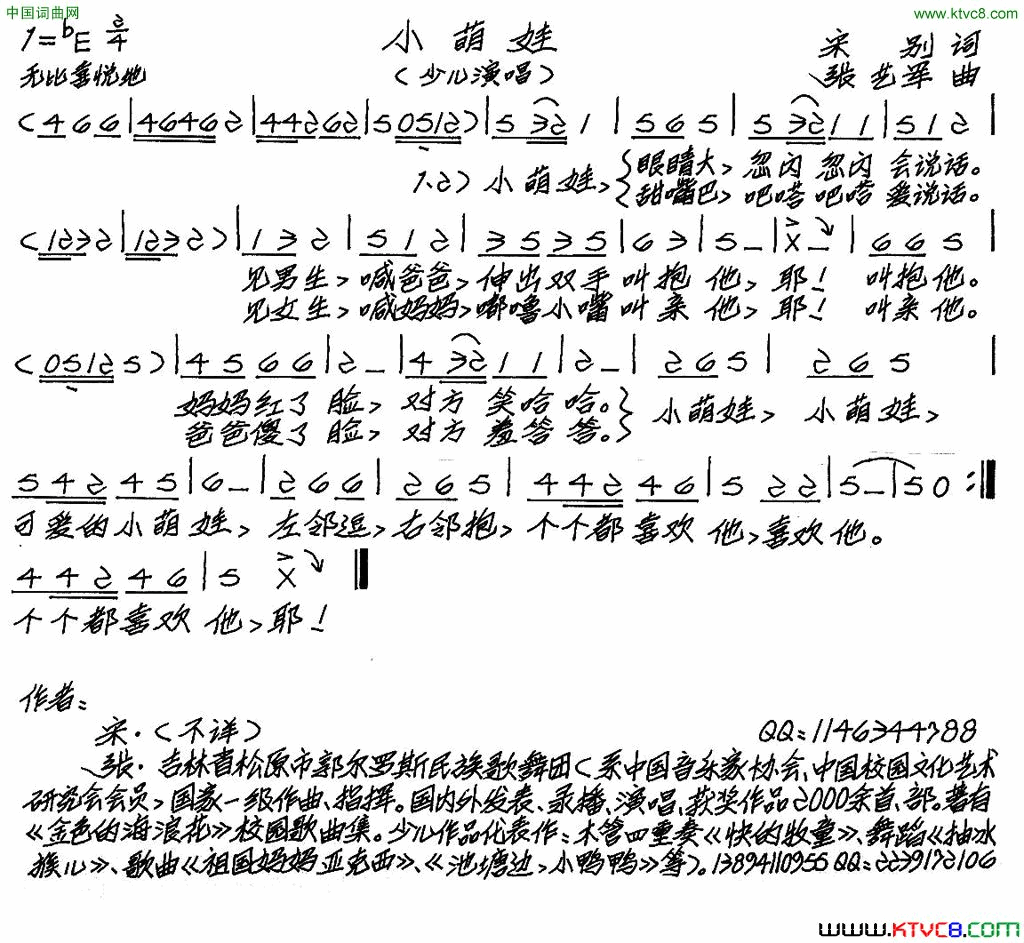 中国词曲网
www.ktvc8.com
1=bE 2/4
小萌娃
宋别词
无比喜悦地
(少儿演唱)
张艺军曲
(4 6 6|4 6 4 6 2|4 4 2 6 2|5 0 5 1 2)|5 3 2 1|5 6 5|5 3 2 1 1|5 1 2|
眼睛大,忽闪忽闪会说话。
1.2)小萌娃,
甜嘴巴,吧嗒吧嗒爱说话。
(1 2 3 2|1 2 3 2)|1 3 2|5 1 2|3 5 3 5|6 3|5 -|X -|6 6 5|
见男生,喊爸爸,伸出双手叫抱他,耶!叫抱他。
见女生,喊妈妈,嘟噜小嘴叫亲他,耶!叫亲他。
(0 5 1 2 5)|4 5 6 6|2 -|4 3 2 1 1|2 -|2 6 5|2 6 5|
妈妈红了脸,对方笑哈哈。}小萌娃,小萌娃,
爸爸傻了脸,对方羞答答。
5 4 2 4 5|6 -|2 6 6|2 6 5|4 4 2 4 6|5 2 2|5 -|5 0:‖
可爱的小萌娃,左邻逗,右邻抱,个个都喜欢他,喜欢他。
4 4 2 4 6|5 X‖
个个都喜欢他,耶!
作者:
宋·(不详) QQ:1146344788
张·吉林省松原市郭尔罗斯民族歌舞团(系中国音乐家协会、中国校园文化艺术
研究会会员,国家一级作曲、指挥。国内外发表、录播、演唱、获奖作品2000余首、部。著有
《金色的海浪花》校园歌曲集。少儿作品代表作:木管四重奏《快的牧童》、舞蹈《抽冰
猴儿》、歌曲《祖国妈妈亚克西》、《池塘边,小鸭鸭》等)。13894110955 QQ:2239172106
www.KTVC8.com